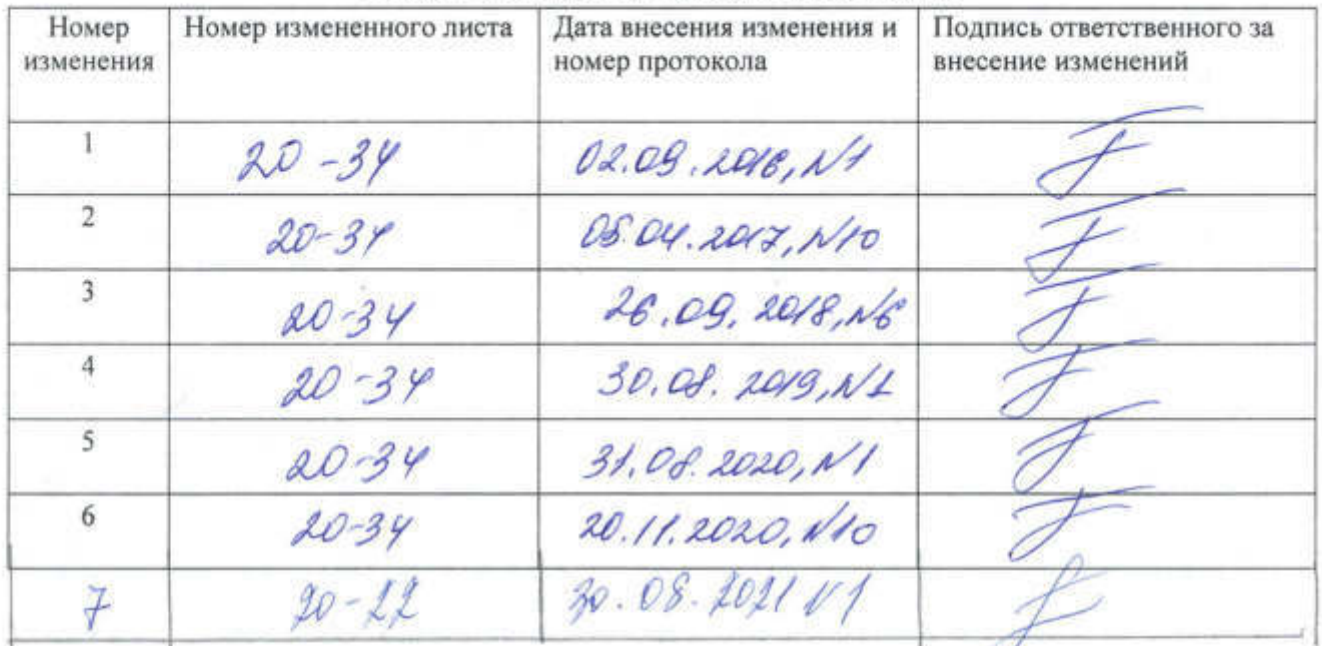 Номер изменения | Номер измененного листа | Дата внесения изменения и номер протокола | Подпись ответственного за внесение изменений
1 | 20-34 | 02.09.2016, №1
2 | 20-34 | 05.04.2017, №10
3 | 20-34 | 26.09.2018, №6
4 | 20-34 | 30.08.2019, №1
5 | 20-34 | 31.08.2020, №1
6 | 20-34 | 20.11.2020, №10
7 | 20-22 | 30.08.2021 №1